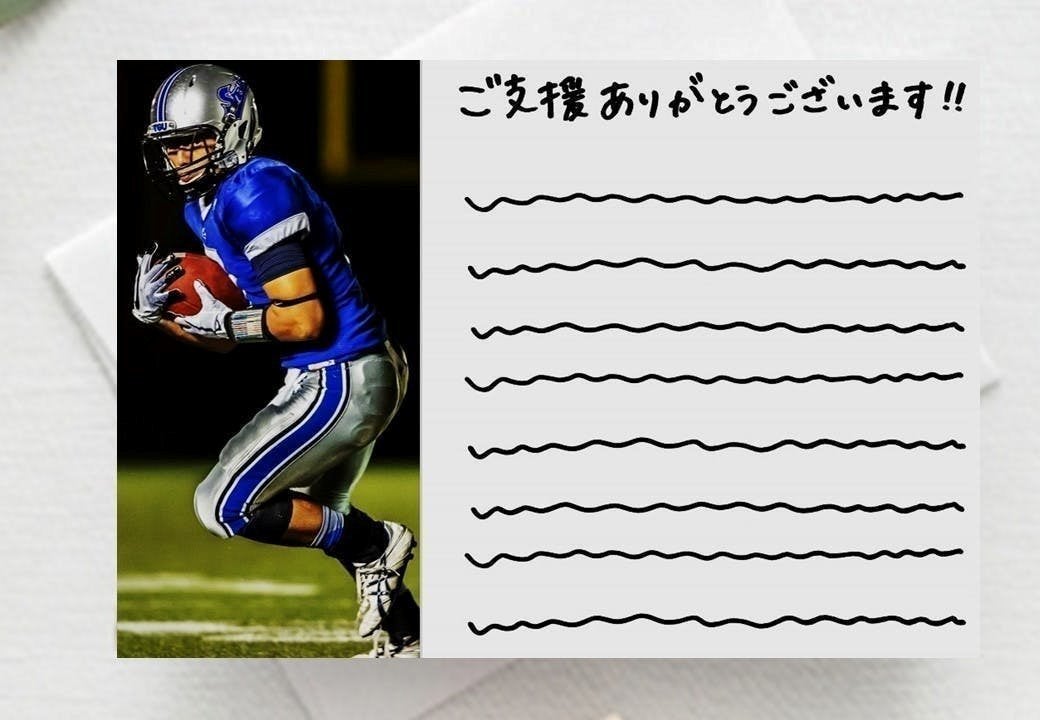 ご支援ありがとうございます!!